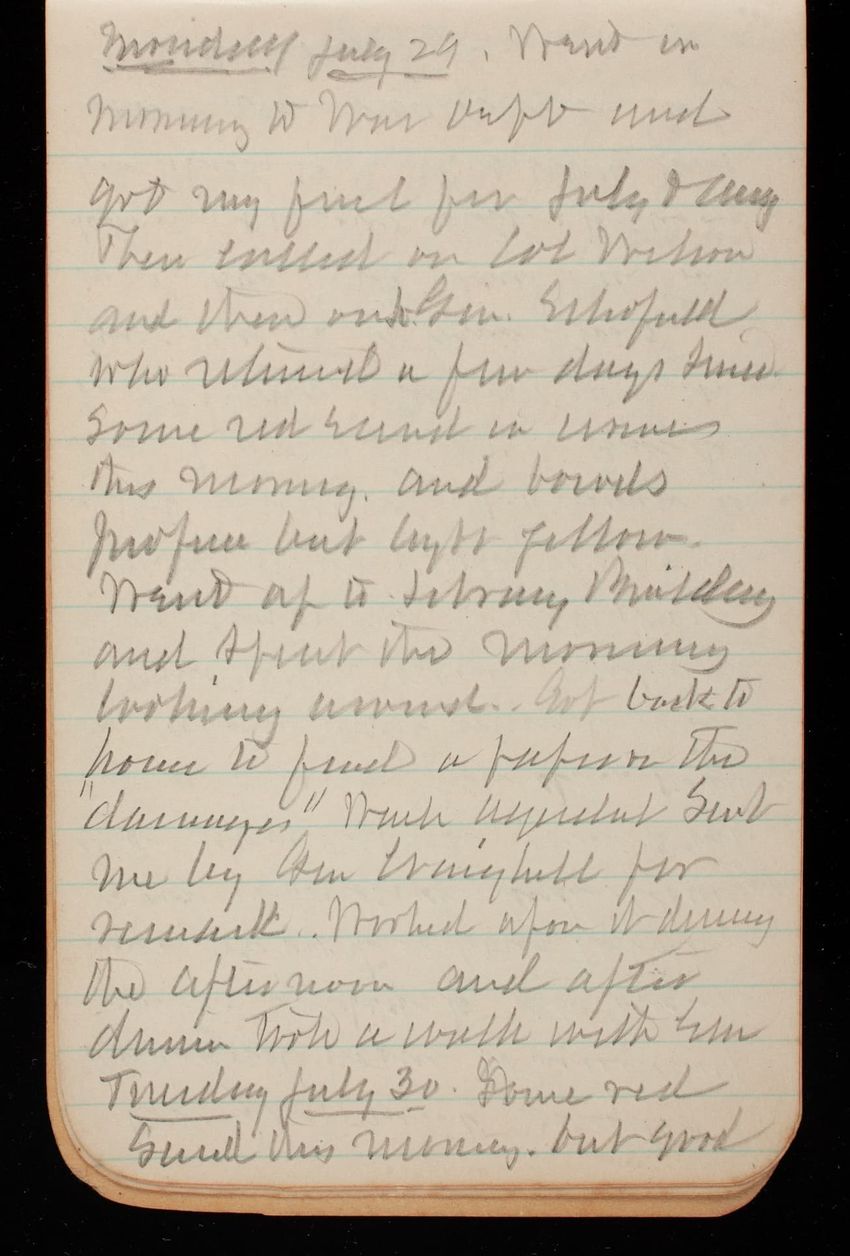 Monday July 29. Went in
morning to War Dept and
got my fuel for July & Aug
Then called on Col Wilson
and then on Gen. Schofield
who returned a few days since.
Some red sand in urine
this morning. and bowels
profuse but light yellow.
Went up to Library Building
and spent the morning
looking around. Got back to
house to find a paper on the
"damages" Wash aqueduct sent
me by Gen Craighill for
remark. Worked upon it during
the afternoon and after
dinner took a walk with
Tuesday July 30. Some red
sand this morning. but good